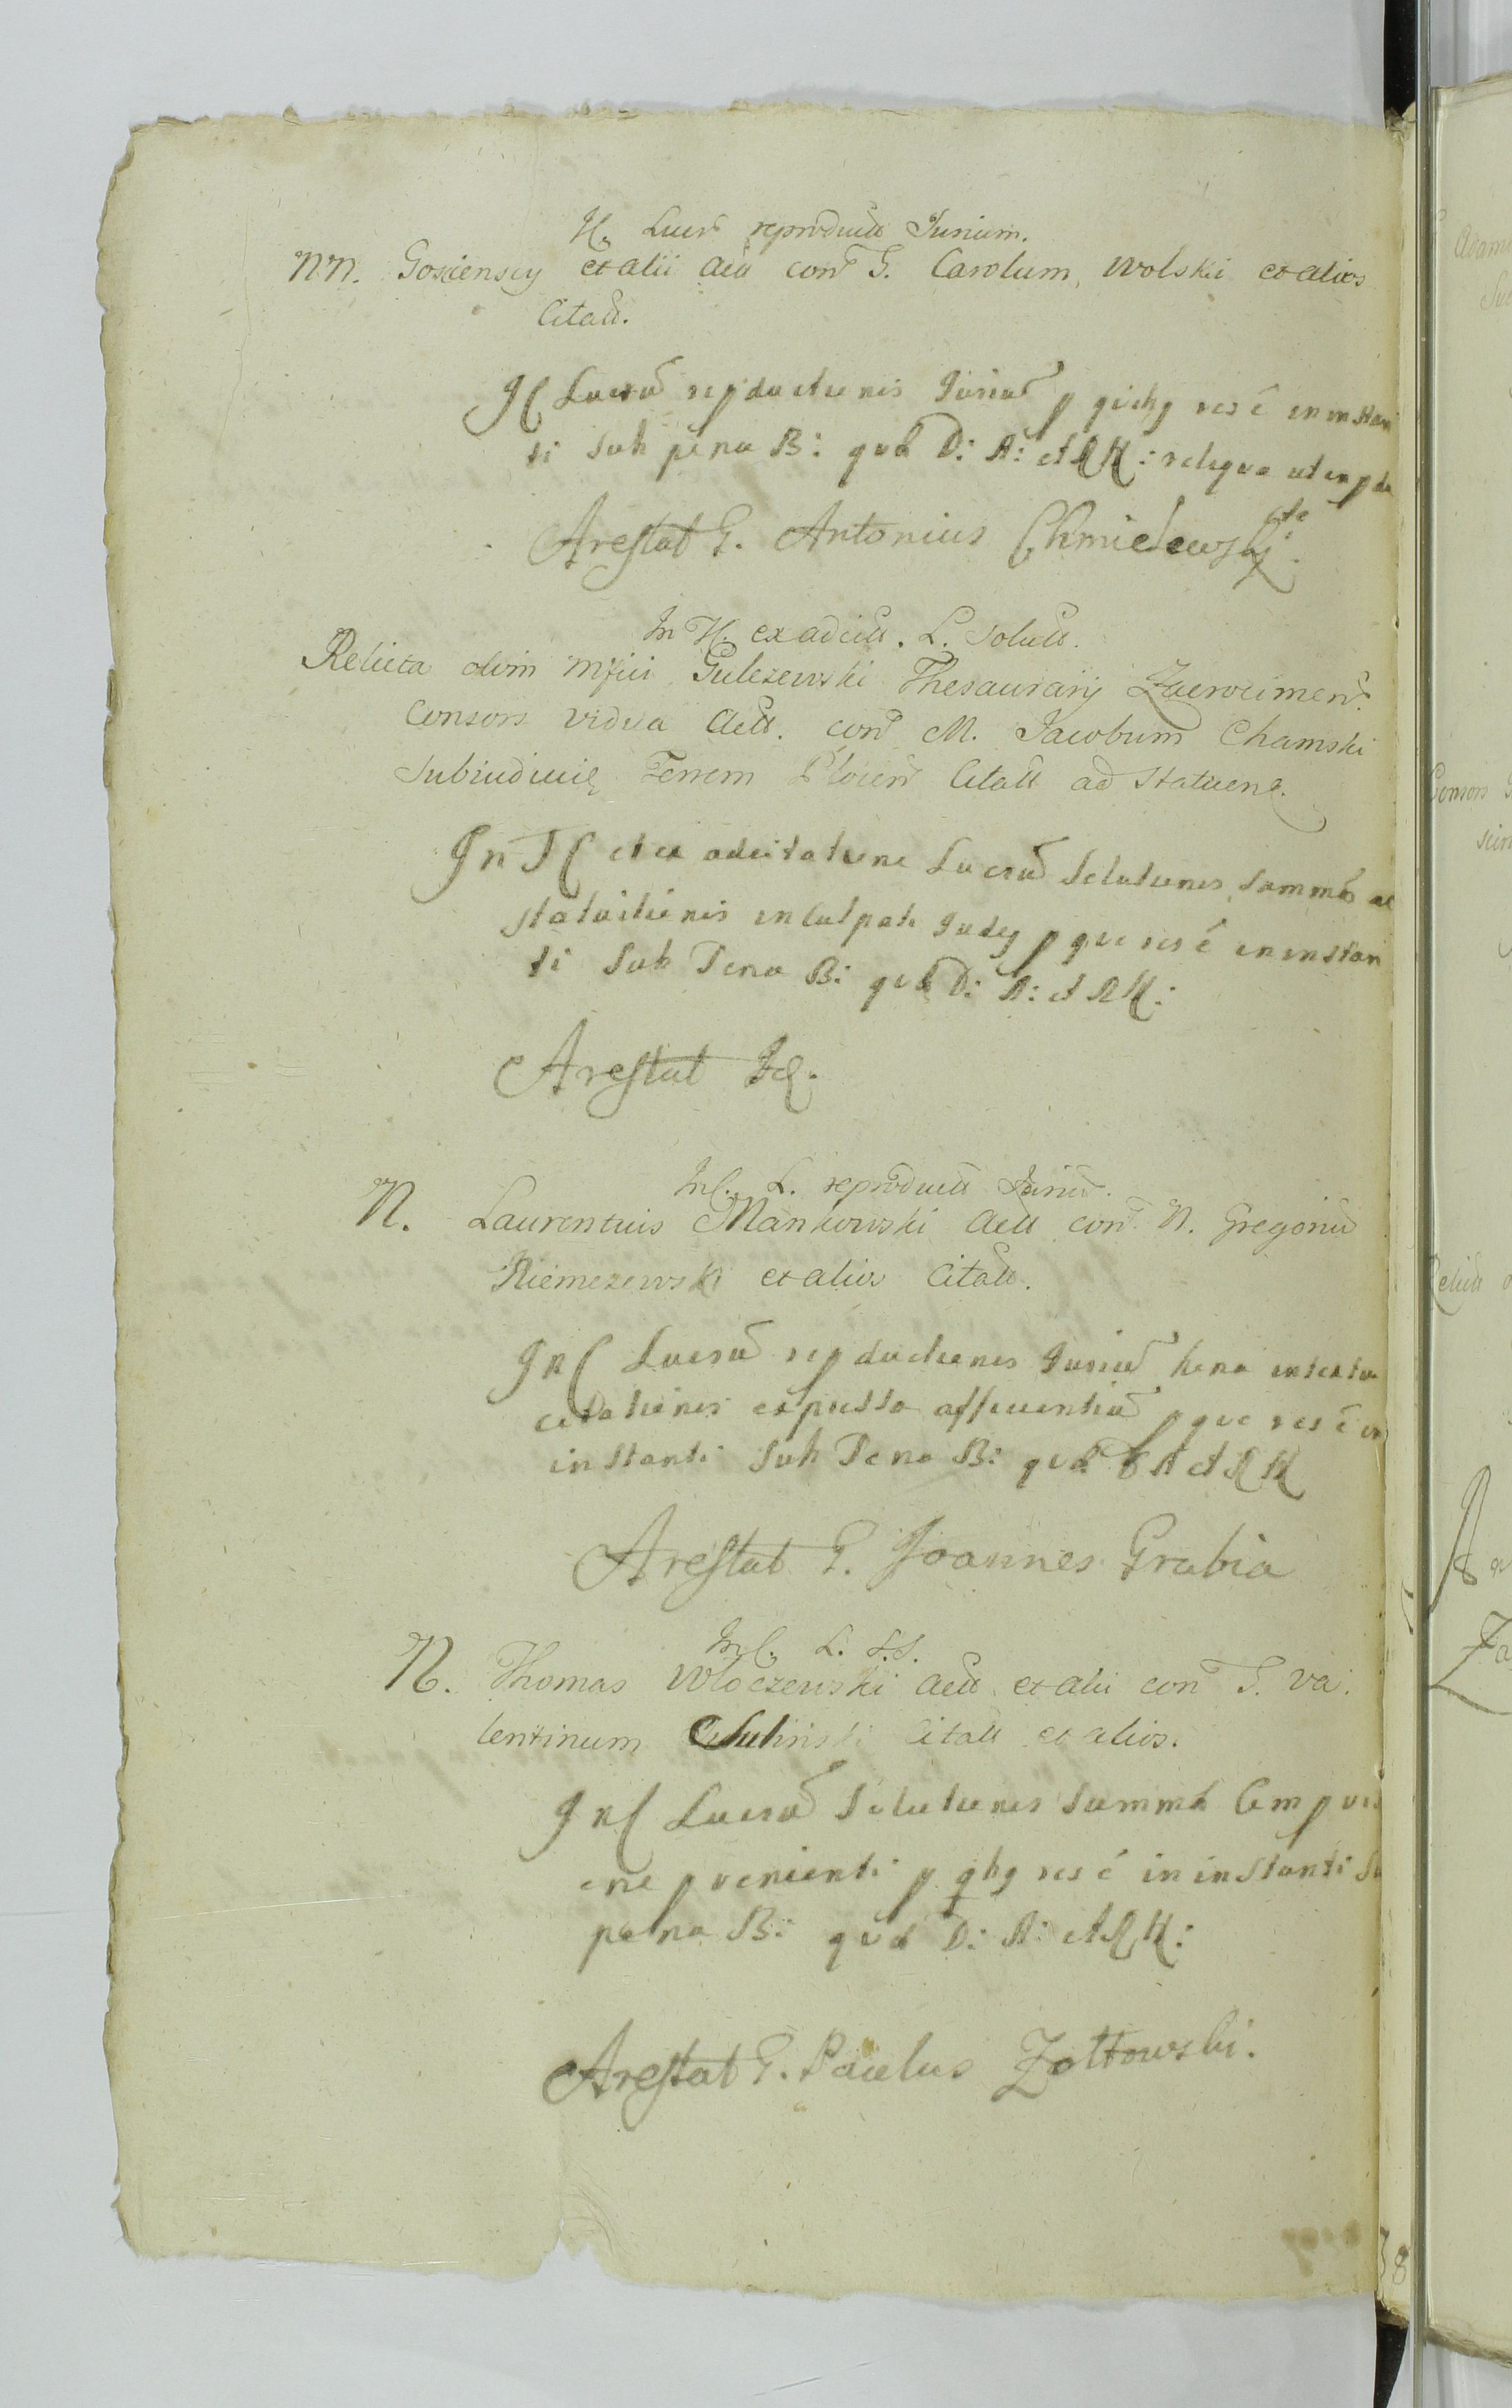 H. Lucr reproduct Jurium.
NN. Gosciensey et alii Act con G. Carolum, Wolski et alios
Citatt.
JC Lucru repductionis Juriu p quibg res e in instan
ti sub pena B: qua D: A: et RH: reliqua ut in pde
Arestat G. Antonius Chmielewsky
In H. ex adcitt. L. solutt.
Relicta olim Mfici Gulczewski Thesaurarij Zacrocimen.
Consors vidua Actt. con M. Jacobum Chamski
Subiudicie Terrem Plocen Citatt ad Statuend.
In H et ex adcitatione Lucru Solutionis Summa ac
statuitionis inculpati Judey p que res e in instan
ti Sub Pena B: qua D: A: et RH:
Arestat Id.
InC. L. reproductt Juriu.
N. Laurentius Mankowski Actt con N. Gregoriu
Niemczewski et alios Citatt.
InC Lucru repductionis Juriu bona in textu
citationis expressa afficientiu p que res e in
instanti Sub Pena B: qua D A et RH
Arestat G. Joannes Grabia
InC. L. S.S.
N. Thomas Wloczewski Actt et alii con G. Va
lentinum Sulinski Citatt et alios.
InC Lucru Solutionis Summa
ene pvenienti p qbg res e in instanti Su
pena B: qua D: A: et RH:
Arestat G. Paulus Zoltowski.
38